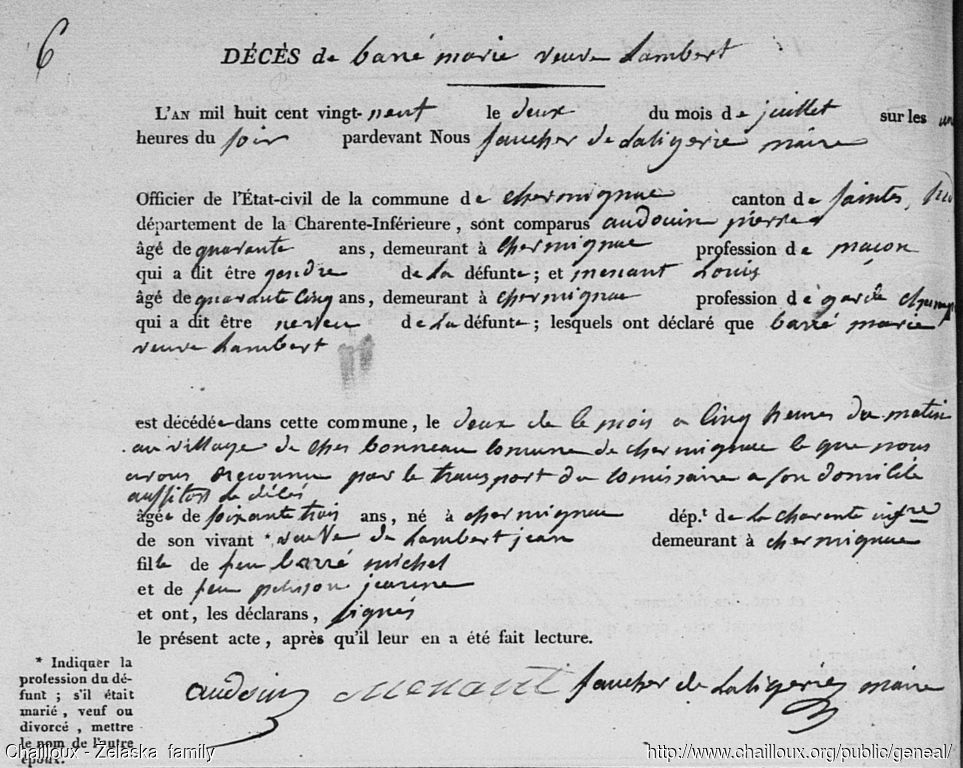 6
DÉCÈS de barré marie veuve Lambert
L'AN mil huit cent vingt-neuf le deux du mois de juillet sur les
heures du soir pardevant Nous faucher de Laligerie maire
Officier de l'État-civil de la commune de chermignac canton de saintes,
département de la Charente-Inférieure, sont comparus audouin pierre
âgé de quarante ans, demeurant à chermignac profession de maçon
qui a dit être gendre de la défunte; et menant Louis
âgé de quarante cinq ans, demeurant à chermignac profession de garde
qui a dit être neveu de la défunte; lesquels ont déclaré que barré marie
veuve Lambert
est décédée dans cette commune, le deux de ce mois a cinq heures du matin
au village de ches bonneau comune de chermignac ce que nous
avons reconnu par le transport du comissaire a son domicile
aussitost le décés
âgée de soixante trois ans, né à chermignac dép.t de la charente infre
de son vivant * veuve de Lambert jean demeurant à chermignac
fille de feu barré michel
et de feu pelisson jeanne
et ont, les déclarans, signés
le présent acte, après qu'il leur en a été fait lecture.
* Indiquer la
profession du dé-
funt; s'il était
marié, veuf ou
divorcé, mettre
le nom de l'autre
époux.
audouin Menant faucher de Laligerie maire
Chailloux - Zelaska family
http://www.chailloux.org/public/geneal/